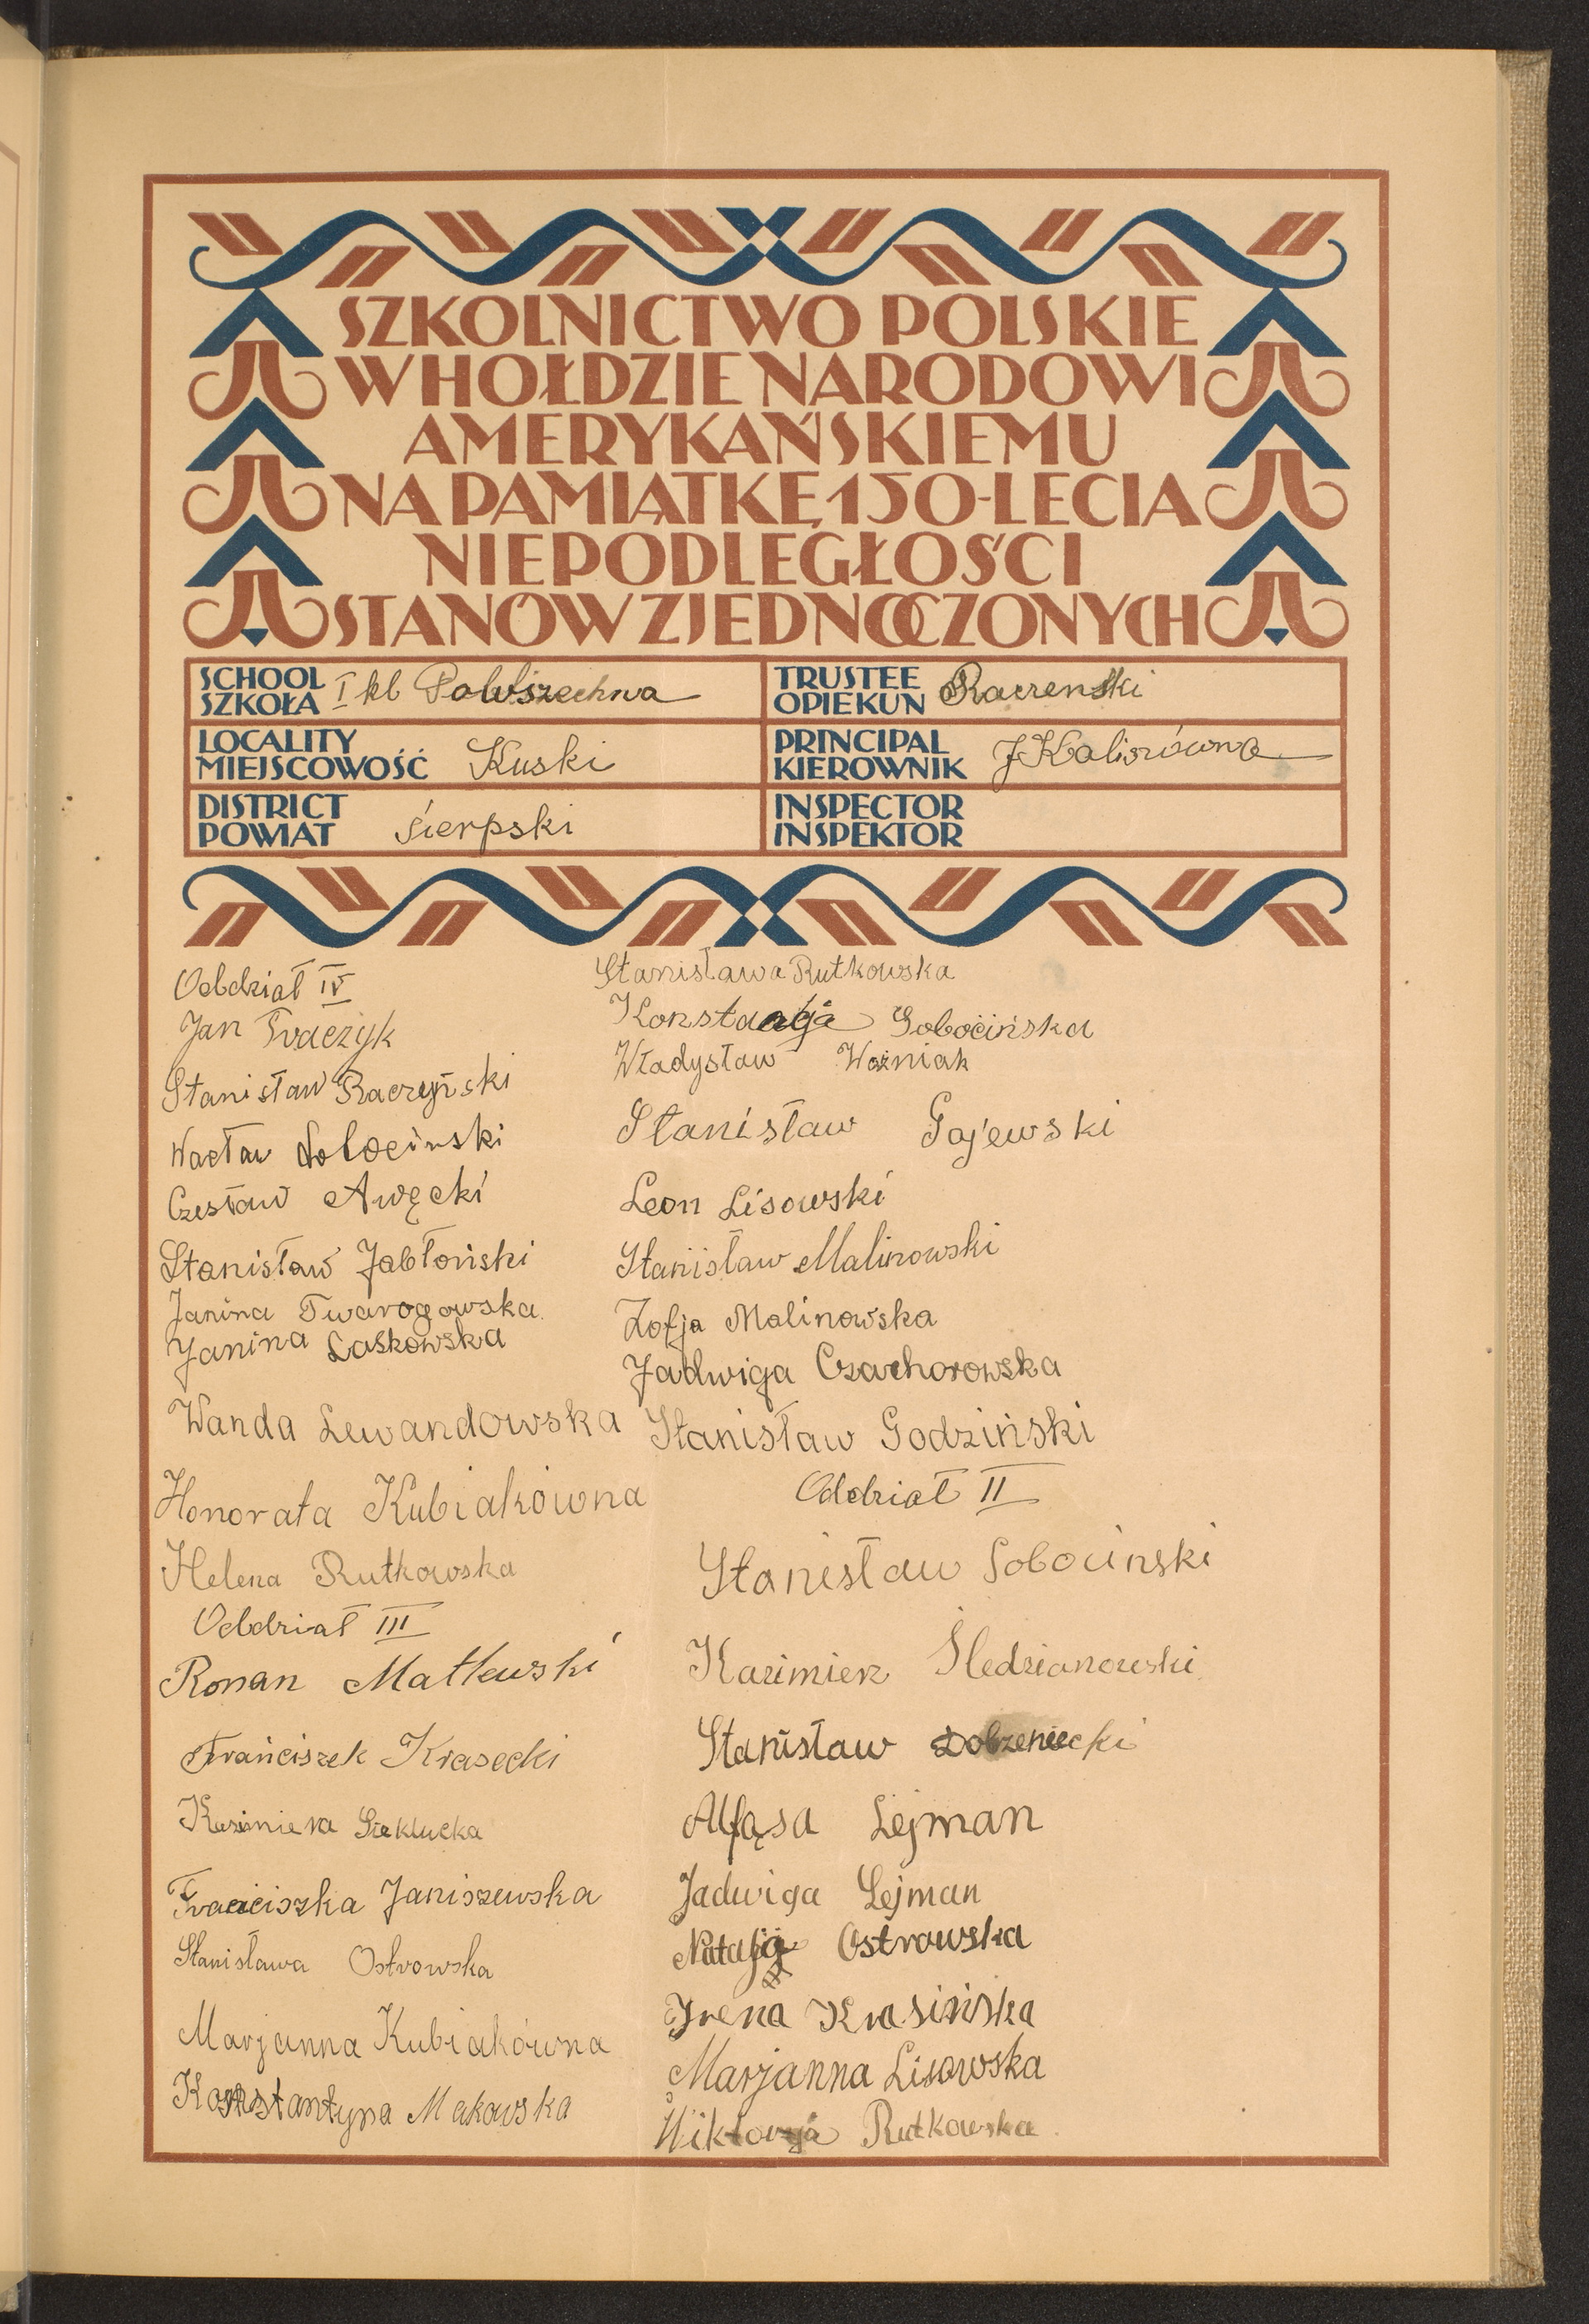 SZKOLNICTWO POLSKIE
W HOŁDZIE NARODOWI
AMERYKAŃSKIEMU
NA PAMIĄTKĘ 150-LECIA
NIEPODLEGŁOŚCI
STANÓW ZJEDNOCZONYCH
SCHOOL
SZKOŁA I kl Powszechna
TRUSTEE
OPIEKUN Raczenski
LOCALITY
MIEJSCOWOŚĆ Kuski
PRINCIPAL
KIEROWNIK J Kaliszówna
DISTRICT
POWIAT sierpski
INSPECTOR
INSPEKTOR
Oddział IV
Jan Traczyk
Stanisław Raczyński
Wacław Sobociński
Czesław Awęcki
Stanisław Jabłoński
Janina Twarogowska
Janina Laskowska
Wanda Lewandowska
Honorata Kubiakówna
Helena Rutkowska
Oddział III
Roman Matlewski
Franciszek Krasecki
Kazimiera Sieklucka
Franciszka Janiszewska
Stanisława Ostrowska
Marjanna Kubiakówna
Konstantyna Makowska
Stanisława Rutkowska
Sobocińska
Władysław Woźniak
Stanisław Gajewski
Leon Lisowski
Stanisław Malinowski
Zofja Malinowska
Jadwiga Czachorowska
Stanisław Godziński
Oddział II
Stanisław Sobocinski
Kazimierz Śledzianowski
Stanisław Dobzeniecki
Lejman
Jadwiga Lejman
Natalja Ostrowska
Irena Krasińska
Marjanna Lisowska
Wiktorja Rutkowska